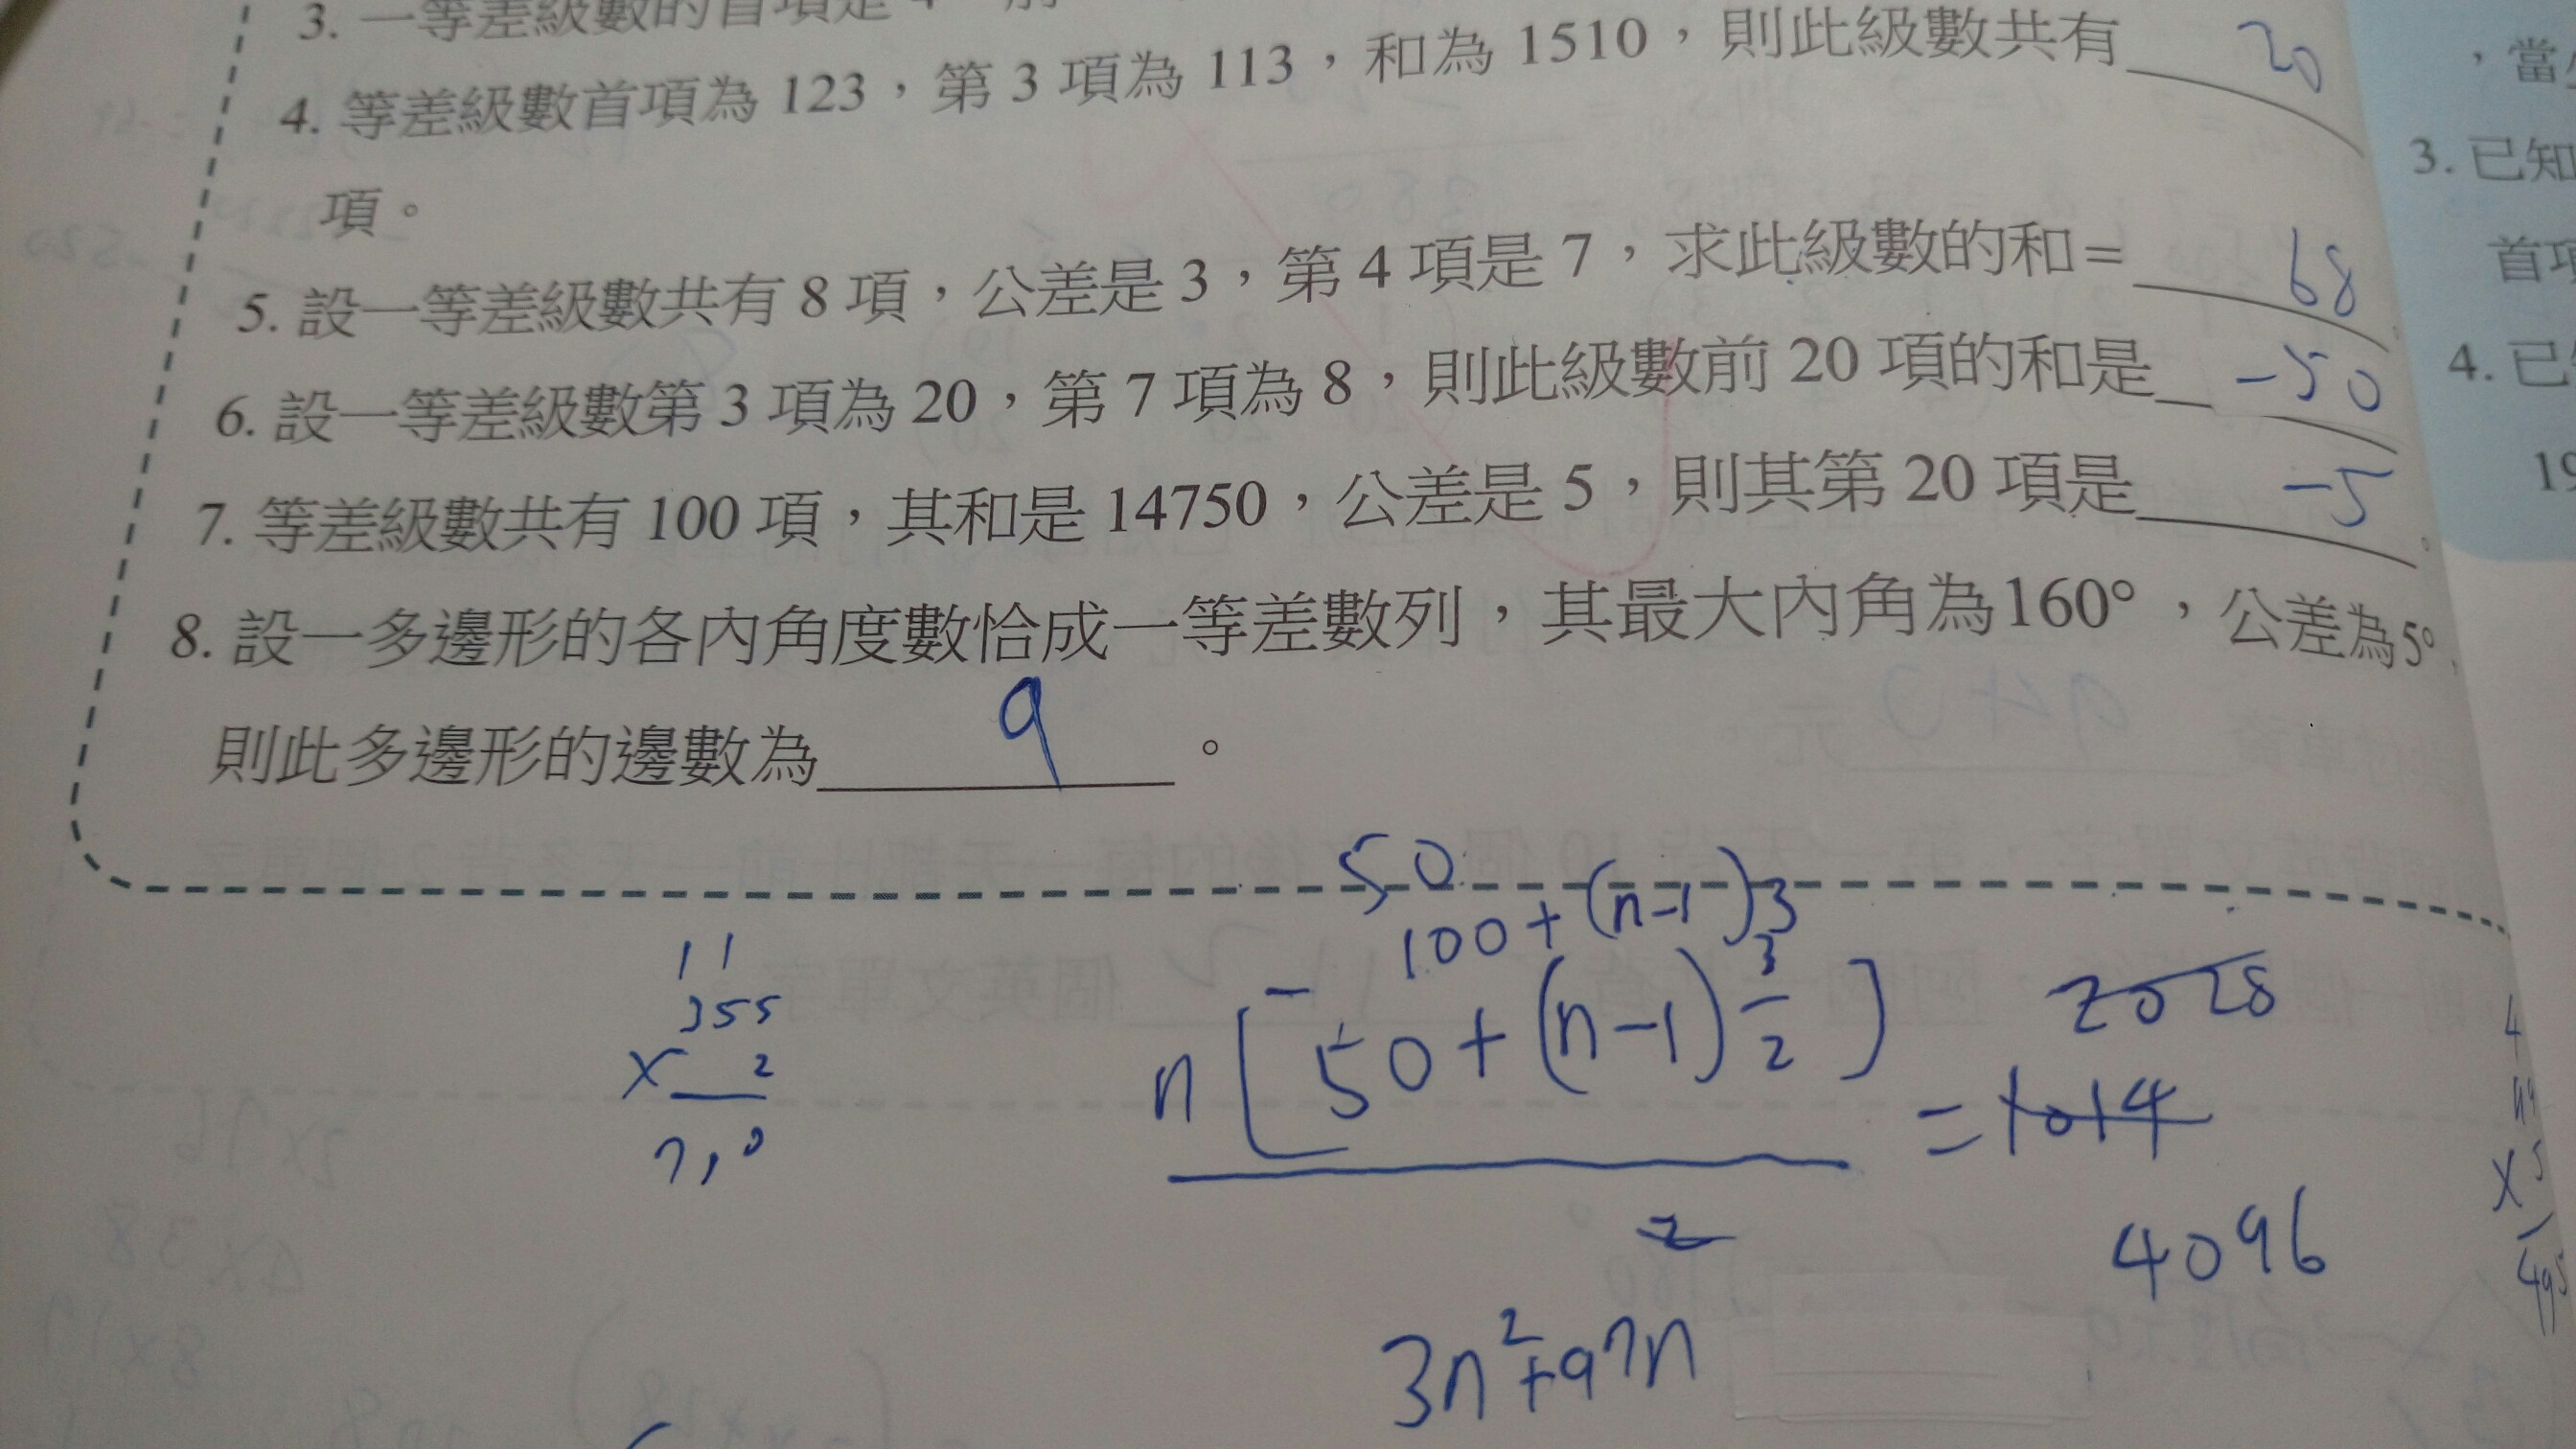 3. 一等差級數的首項是
4. 等差級數首項為 123，第 3 項為 113，和為 1510，則此級數共有 20
項。
5. 設一等差級數共有 8 項，公差是 3，第 4 項是 7，求此級數的和= 68
6. 設一等差級數第 3 項為 20，第 7 項為 8，則此級數前 20 項的和是 -50
7. 等差級數共有 100 項，其和是 14750，公差是 5，則其第 20 項是 -5 。
8. 設一多邊形的各內角度數恰成一等差數列，其最大內角為160°，公差為5°，
則此多邊形的邊數為 9 。
，當
3. 已知
首項
4. 已
19
50
100+(n-1)3
n[50+(n-1)3/2]
2
=1014
2028
4096
3n²+97n
11
355
× 2
710